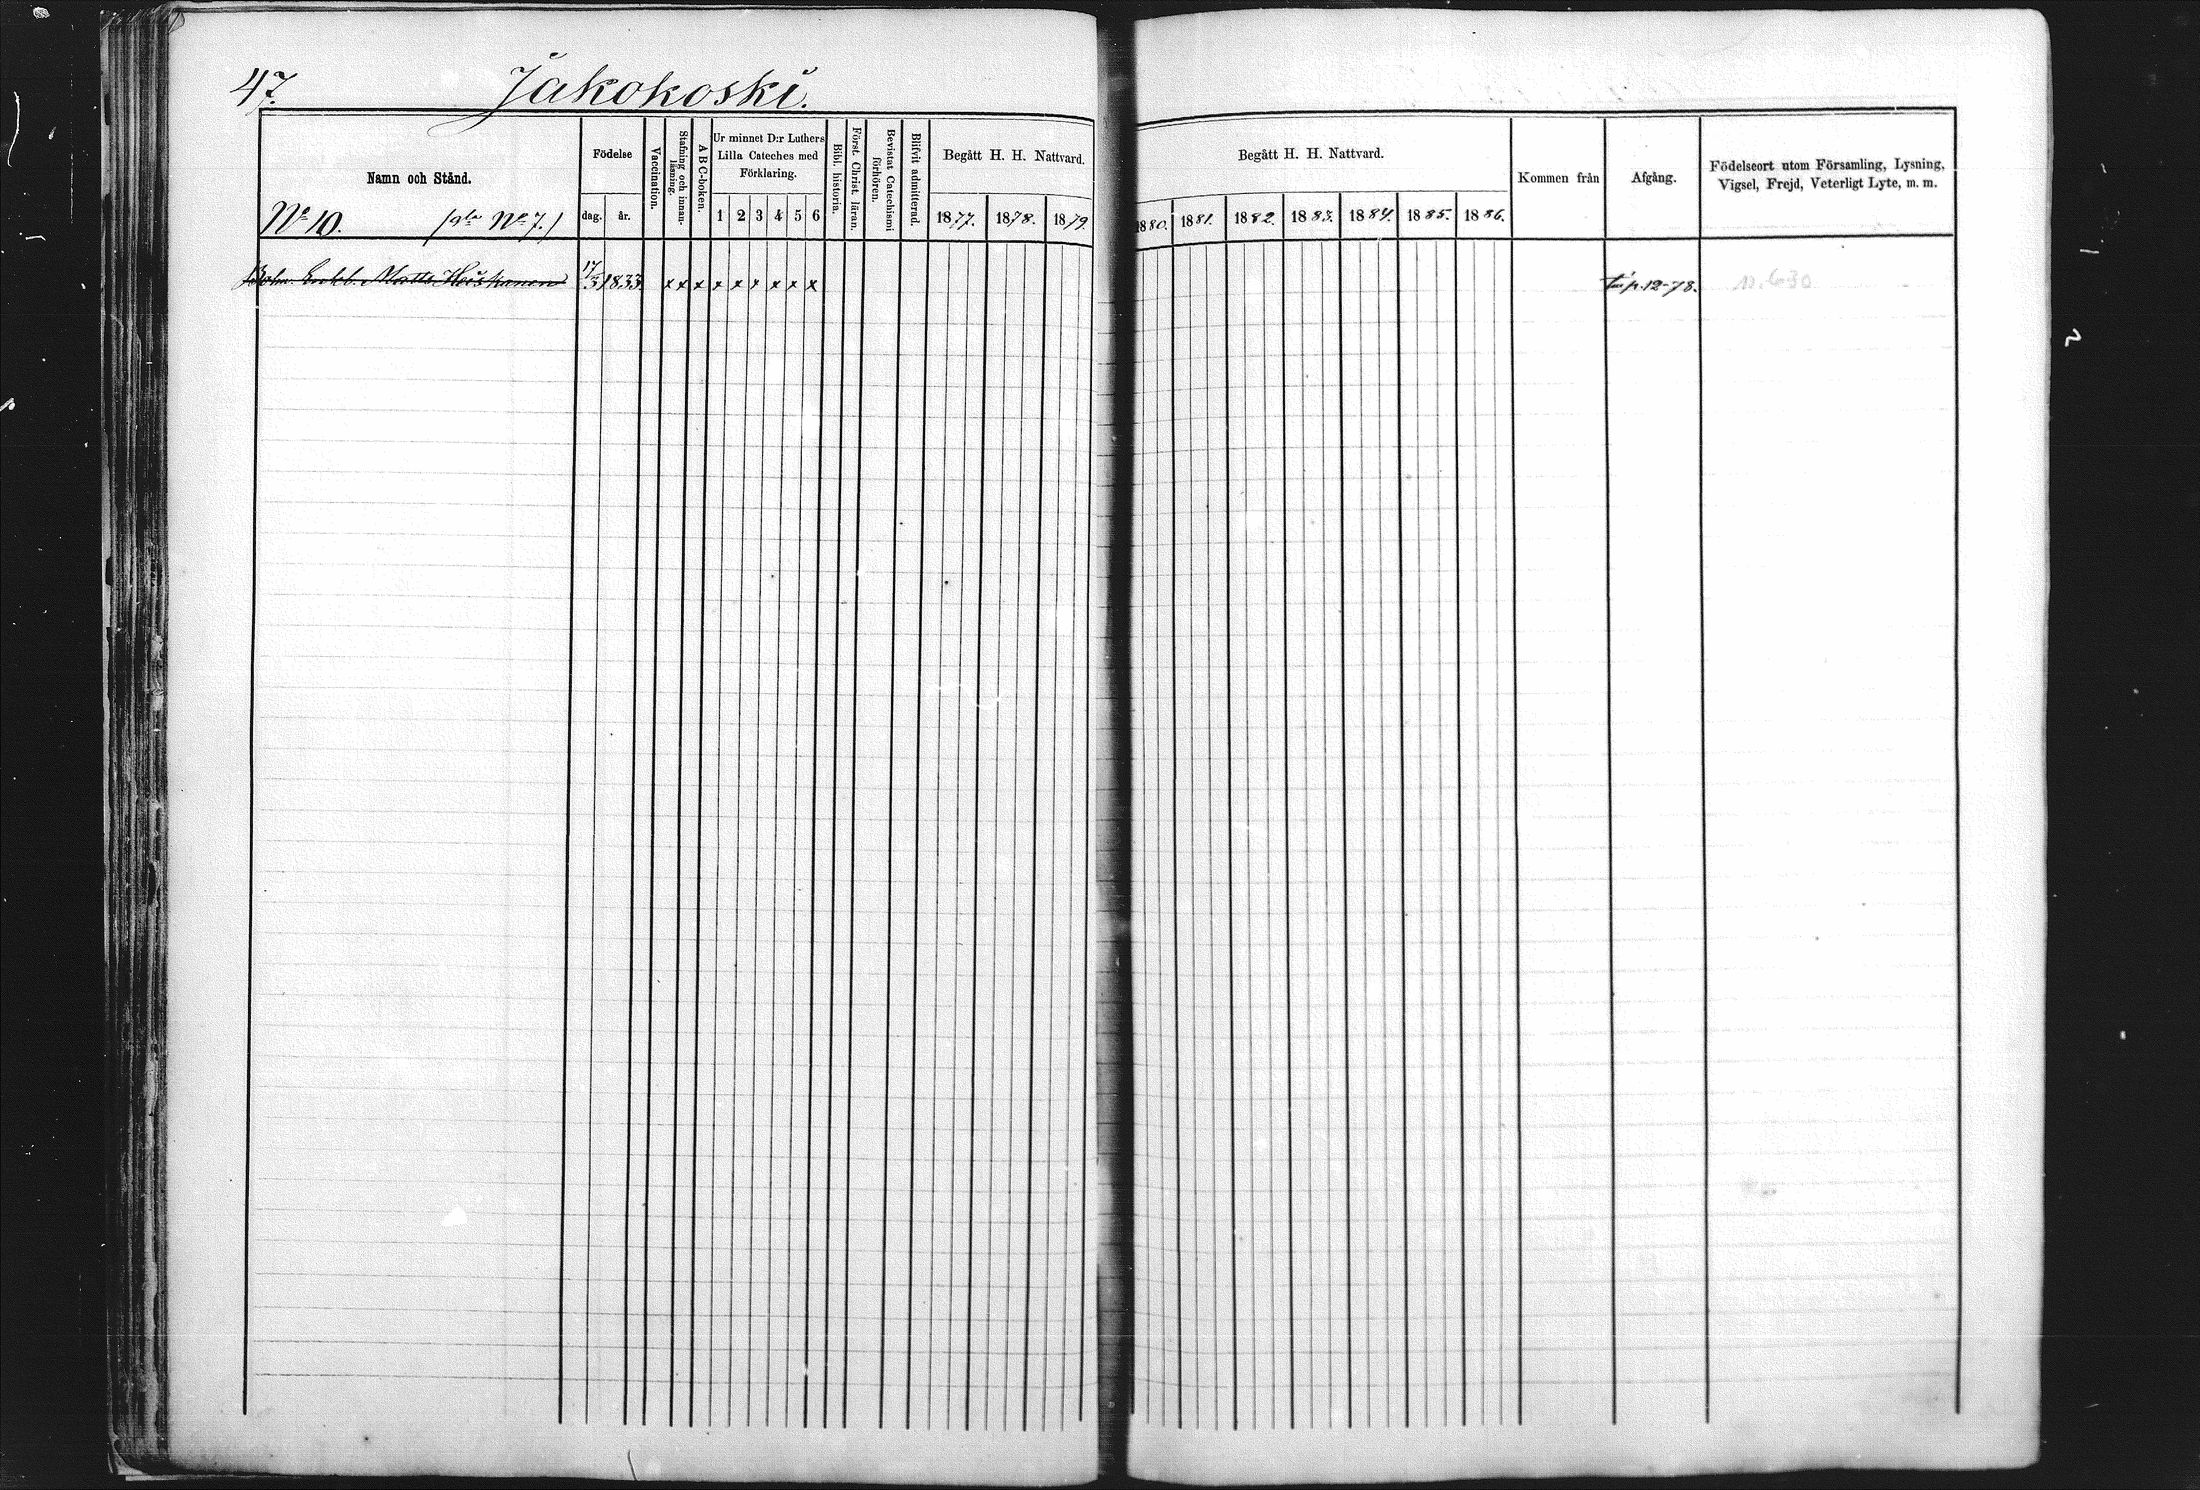 47. Jakokoski.
Namn och Stånd.
No 10. (gla No 7.)
Födelse
dag. år.
Vaccination.
Stafning och innanläsning.
A B C-boken.
Ur minnet D:r Luthers
Lilla Cateches med
Förklaring.
1 2 3 4 5 6
Bibl. historia.
Först. Christ. läran.
Bevistat Catechismi
förhören.
Blifvit admitterad.
Begått H. H. Nattvard.
1877. 1878. 1879
Begått H. H. Nattvard.
1880. 1881. 1882. 1883. 1884. 1885. 1886.
Kommen från
Afgång.
Födelseort utom Församling, Lysning,
Vigsel, Frejd, Veterligt Lyte, m. m.
Matts Heiskanen 17/3 1833 x x x x x x x x x p. 12-78. 630